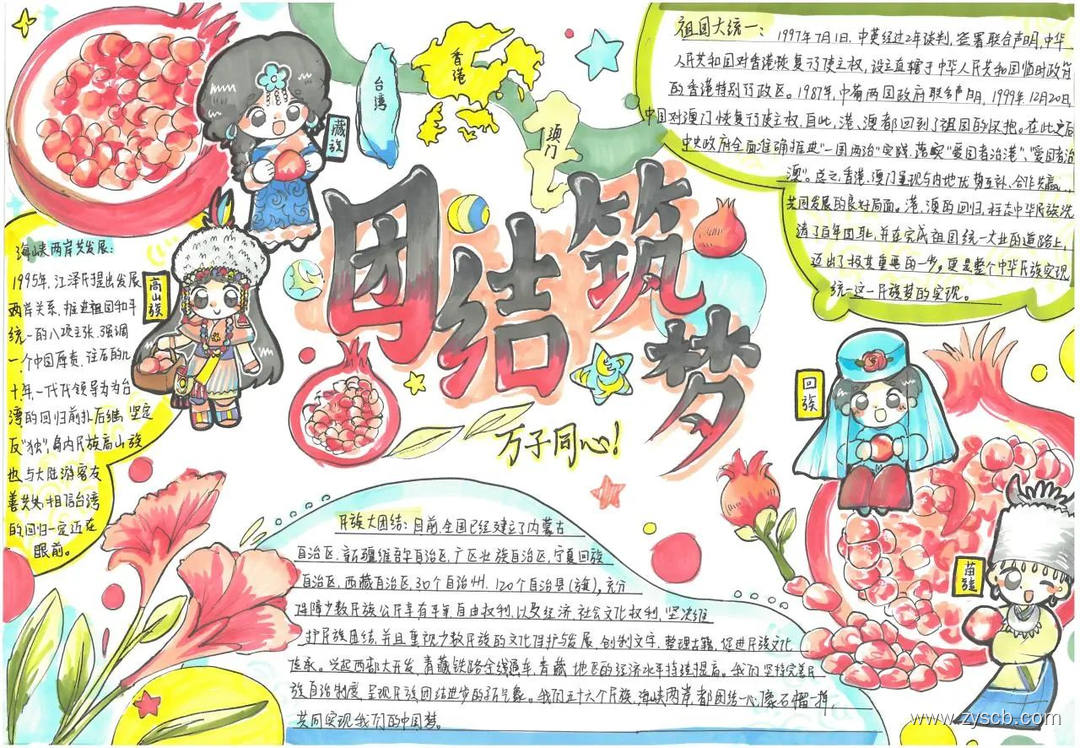 祖国大统一：1997年7月1日，中英经过2年谈判，签署联合声明，中华
人民共和国对香港恢复行使主权，设立直辖于中华人民共和国临时政府
的香港特别行政区。1987年，中葡两国政府联合声明，1999年12月20日，
中国对澳门恢复行使主权，自此，港、澳都回到了祖国的怀抱。在此之后
中央政府全面准确推进"一国两治"实践，落实"爱国者治港"、"爱国者治
澳"。总之，香港、澳门呈现与内地优势互补、合作共赢、
共同发展的良好局面。港、澳的回归，标志中华民族洗
清了百年国耻，并在完成祖国统一大业的道路上，
迈出了极其重要的一步。更是整个中华民族实现
统一这一民族梦的实现。
台湾
香港
澳门
藏族
团结筑梦
万子同心！
海峡两岸共发展：
1995年，江泽民提出发展
两岸关系、推进祖国和平
统一的八项主张，强调
一个中国原责，往后的几
十年一代代领导为为台
湾的回归前扑后继，坚定
反"独"，岛内民族高山族
也与大陆游客友
善共处，相信台湾
的回归一定近在
眼前。
高山族
回族
苗族
民族大团结：目前，全国已经建立了内蒙古
自治区、新疆维吾尔自治区、广西壮族自治区、宁夏回族
自治区、西藏自治区、30个自治州、120个自治县（旗），充分
保障少数民族公平享有平等自由权利，以及经济、社会文化权利，坚决维
护民族团结，并且重视少数民族的文化保护与发展，创制文字、整理古籍，促进民族文化
传承。兴起西部大开发，青藏铁路全线通车，青藏地区的经济水平持续提高。我们坚持完善民
族自治制度，呈现民族团结进步的新气象。我们五十六个民族，海峡两岸，都团结一心，像石榴一样，
共同实现我们的中国梦。
www.zyscb.com